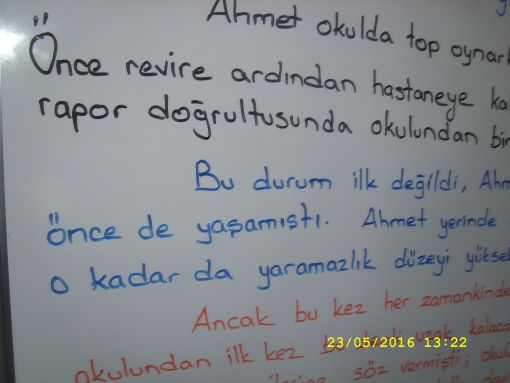 Ahmet okulda top oynar
Önce revire ardından hastaneye ka
rapor doğrultusunda okulundan bir
Bu durum ilk değildi, Ahm
önce de yaşamıştı. Ahmet yerinde
o kadar da yaramazlık düzeyi yüksel
Ancak bu kez her zamankinde
okulundan ilk kez bu kalaca
söz vermişti; okul
23/05/2016 13:22